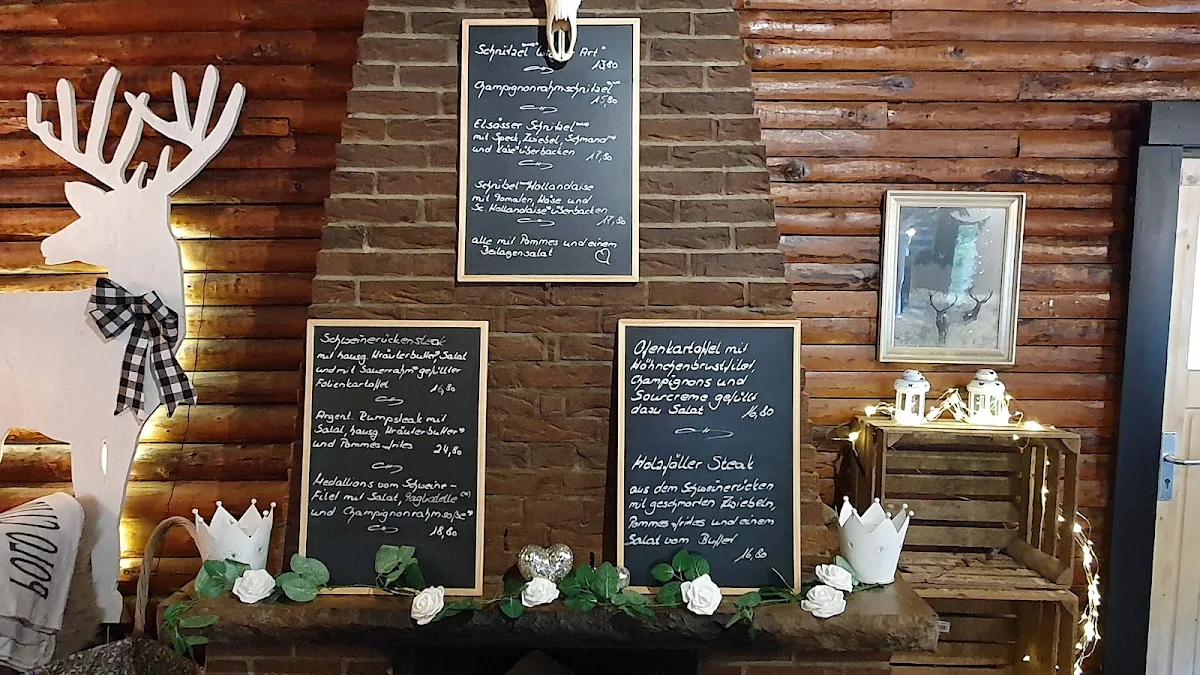 Schnitzel "Wiener Art"
13,80
Champignonrahmschnitzel
15,80
Elsässer Schnitzel
mit Speck, Zwiebel, Schmand
und Käse überbacken
17,80
Schnitzel Hollandaise
mit Tomaten, Käse und
Sc. Hollandaise überbacken
17,80
alle mit Pommes und einem
Beilagensalat
Schweinerückensteak
mit hausg. Kräuterbutter, Salat
und mit Sauerrahm gefüllter
Folienkartoffel 16,80
Argent. Rumpsteak mit
Salat, hausg. Kräuterbutter
und Pommes-frites 24,80
Medallions vom Schweine-
Filet mit Salat, Tagliatelle
und Champignonrahmsoße
18,80
Ofenkartoffel mit
Hähnchenbrustfilet,
Champignons und
Sourcreme gefüllt
dazu Salat 16,80
Holzfäller Steak
aus dem Schweinerücken
mit geschmorten Zwiebeln,
Pommes-frites und einem
Salat vom Buffet
16,80